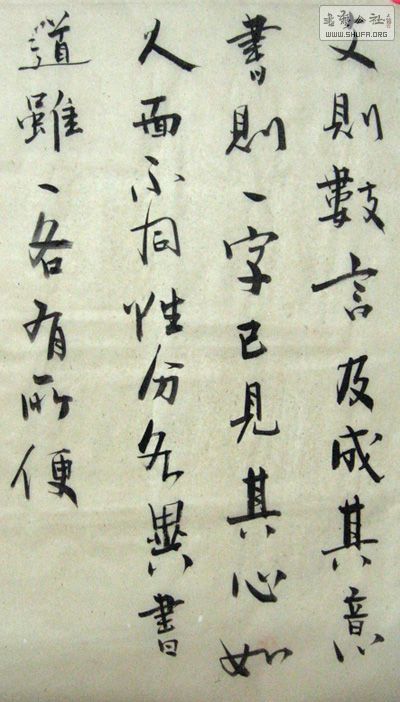 文則數言及成其意
書則一字已見其心如
人面不同性分各異書
道雖一各有所便
書法公社
WWW.SHUFA.ORG